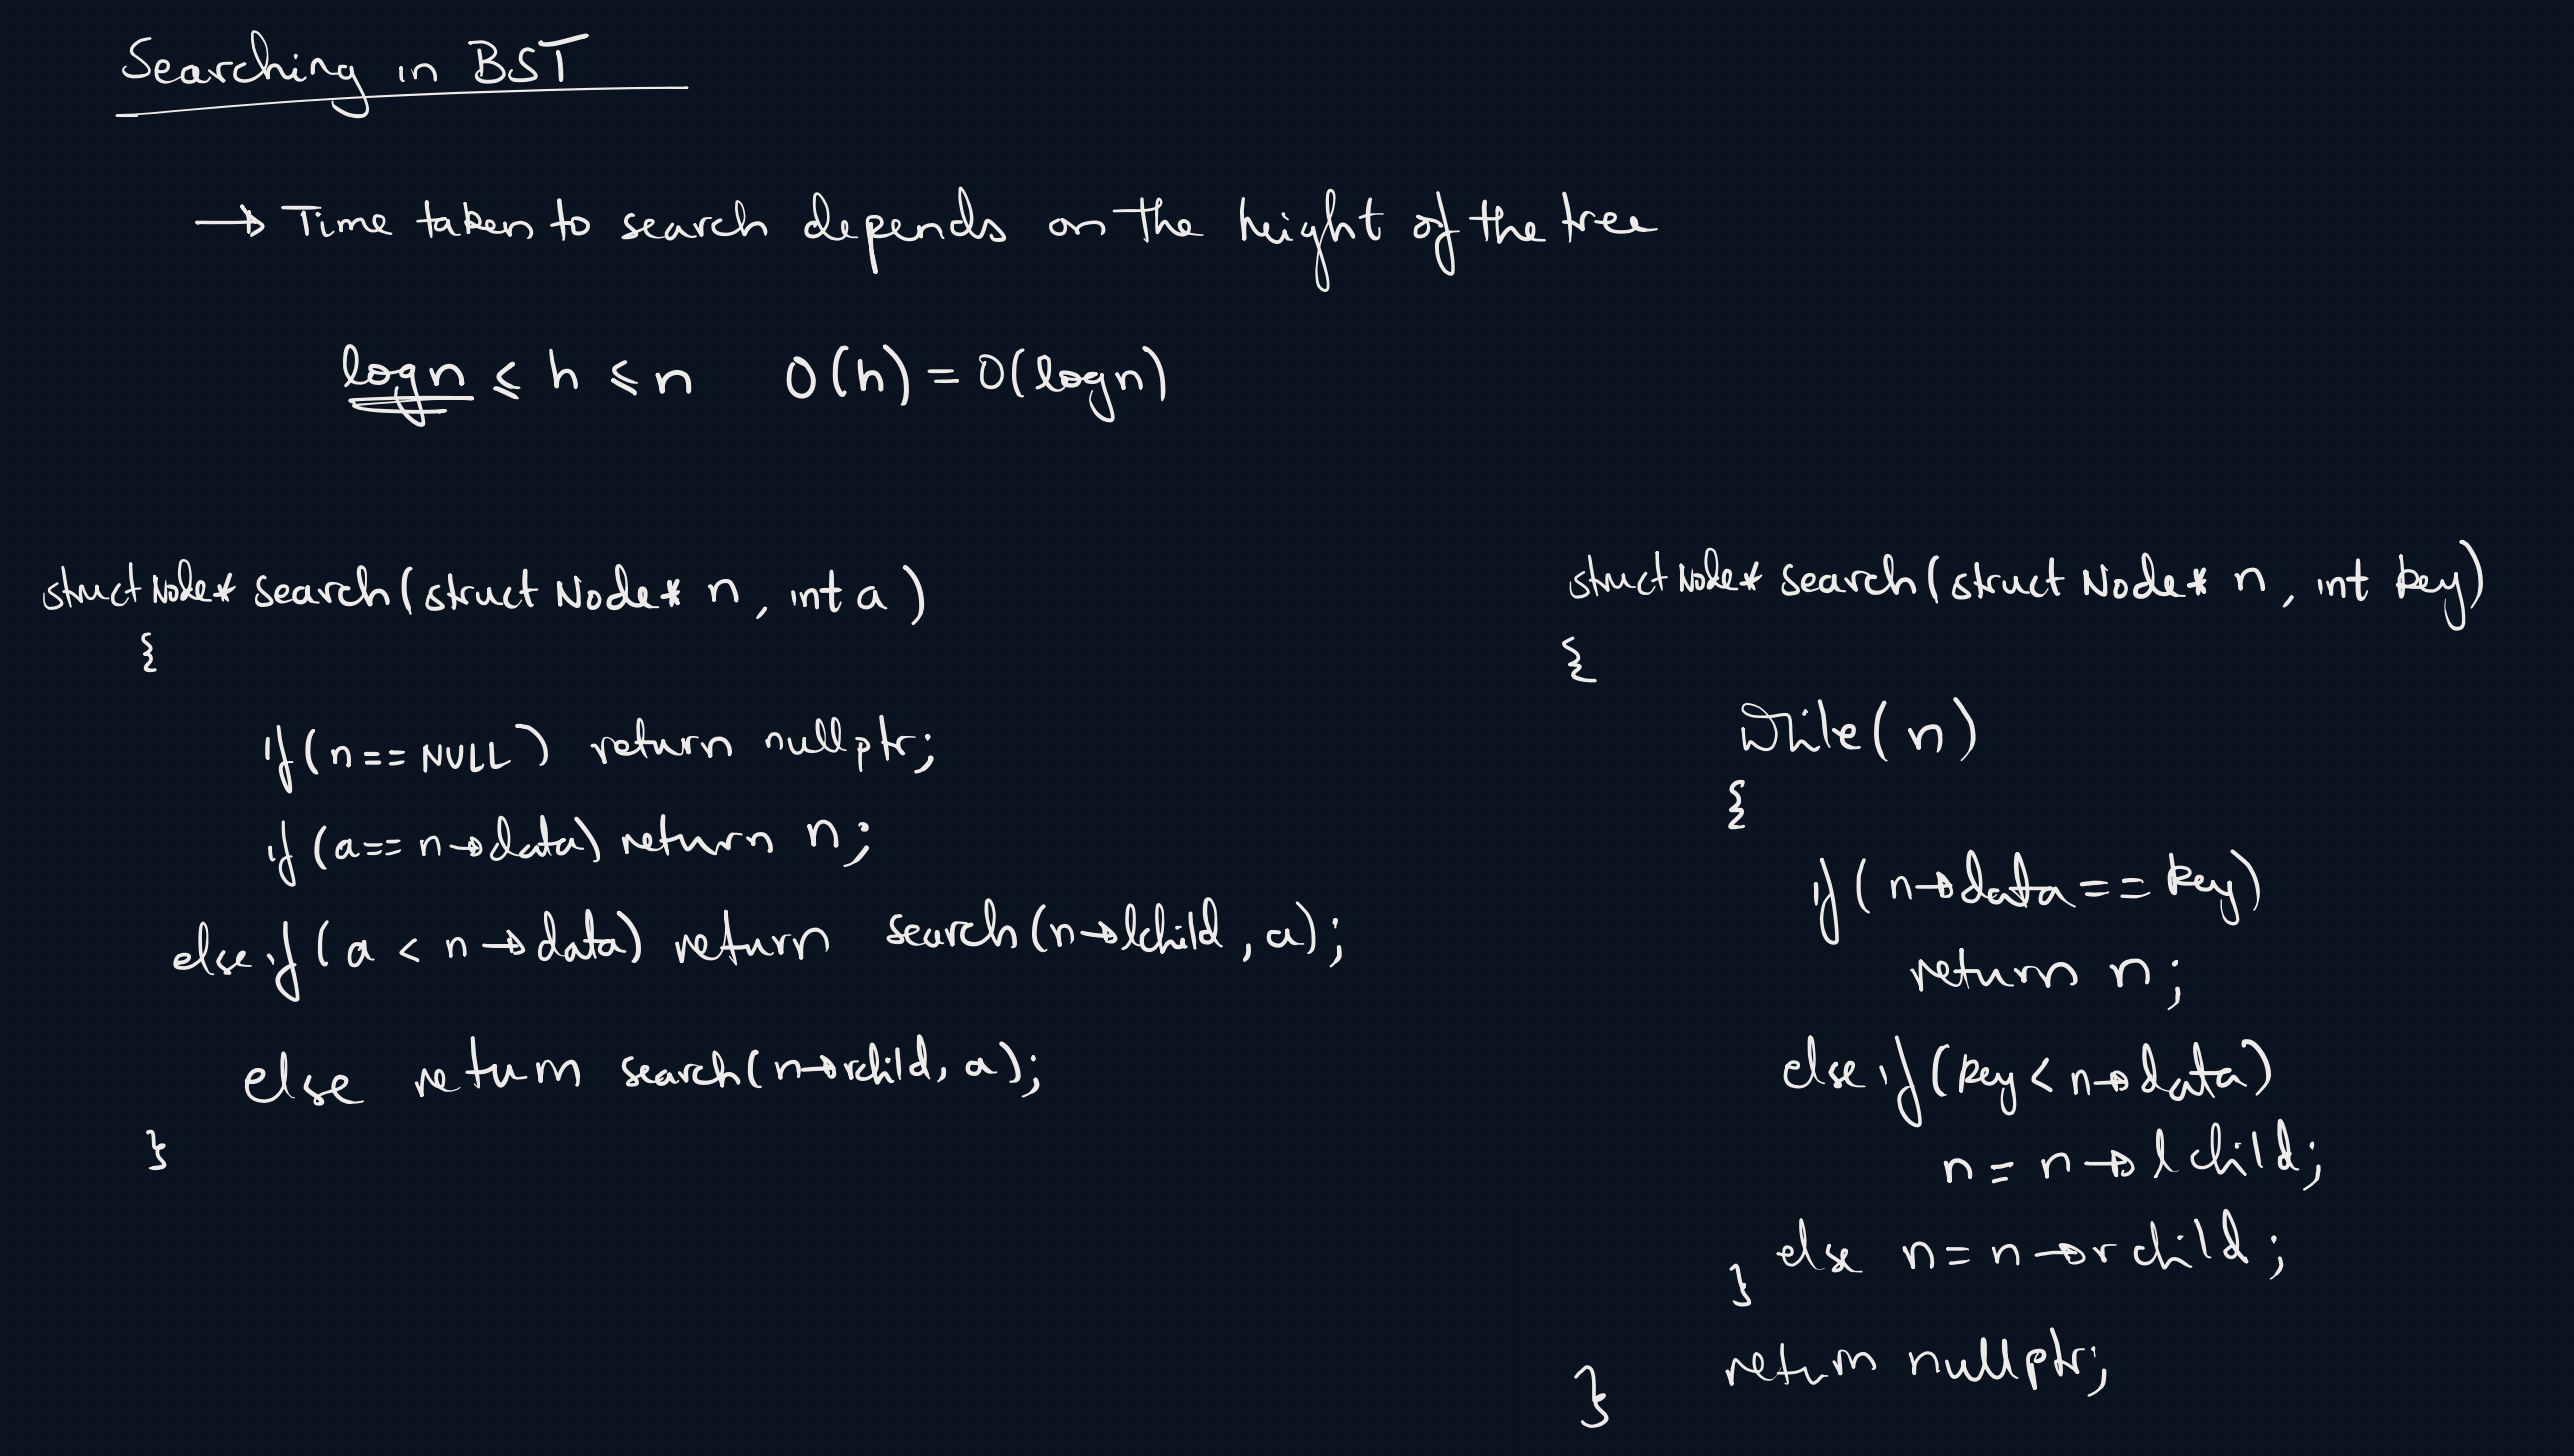 Searching in BST
→ Time taken to search depends on the height of the tree
log n ≤ h ≤ n O(h) = O(log n)
struct Node* search(struct Node* n, int a)
{
if(n==NULL) return nullptr;
if(a==n→data) return n;
else if(a < n→data) return search(n→lchild, a);
else return search(n→rchild, a);
}
struct Node* search(struct Node* n, int key)
{
while(n)
{
if(n→data==key)
return n;
else if(key < n→data)
n = n→lchild;
else n = n→rchild;
}
return nullptr;
}